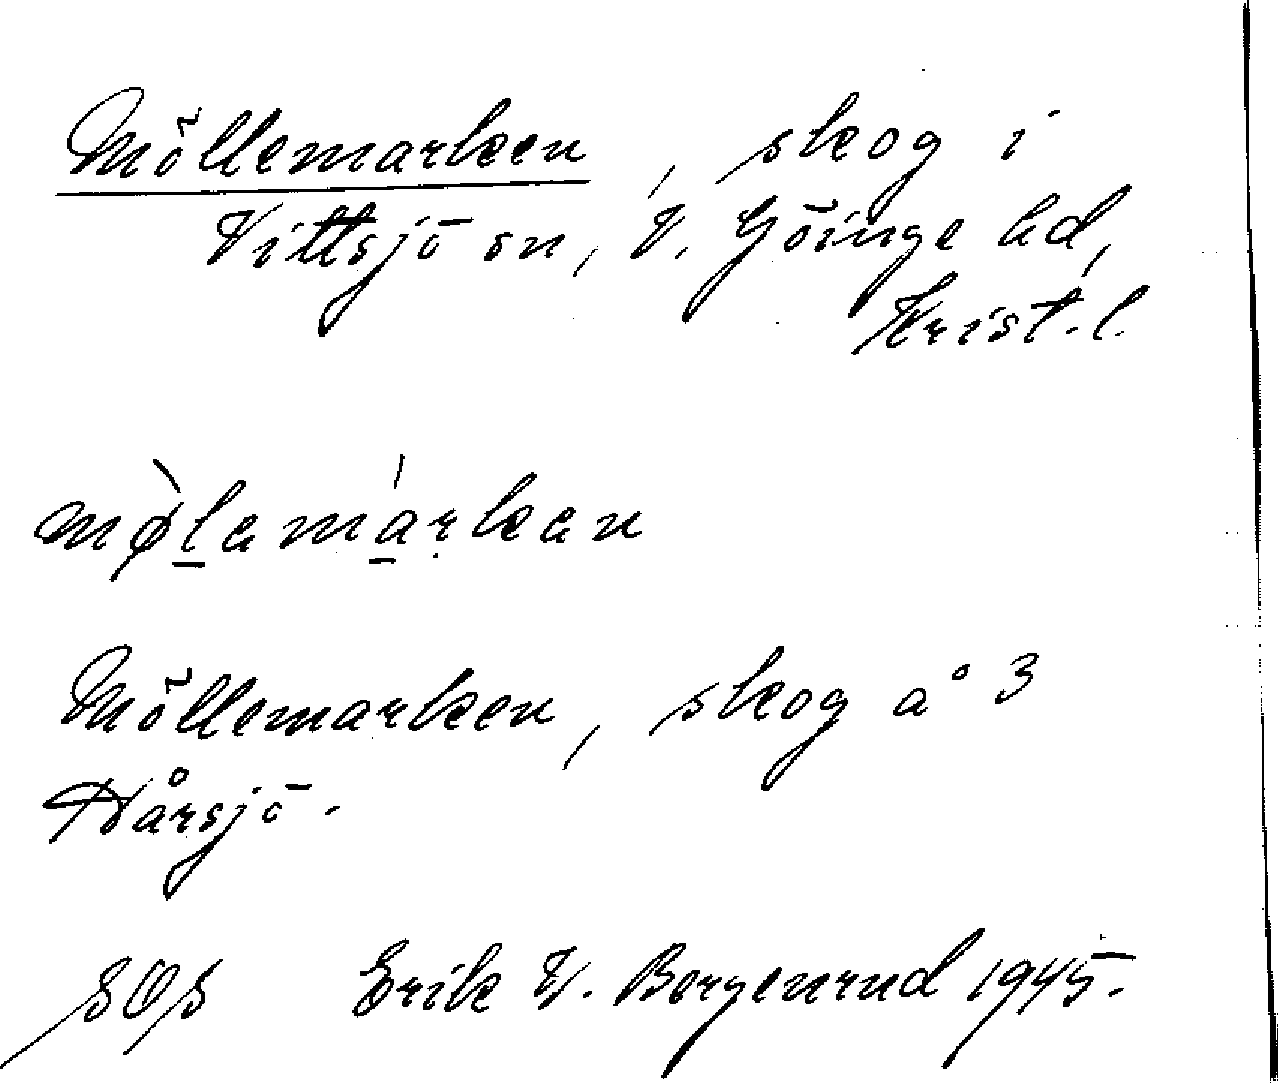 Möllemarken, skog i
Vittsjö sn, V. Göinge hd,
Krist. l.
mø̀lamárkan
Möllemarken, skog å 3
Hårsjö.
Erik W. Bergenrud 1945.